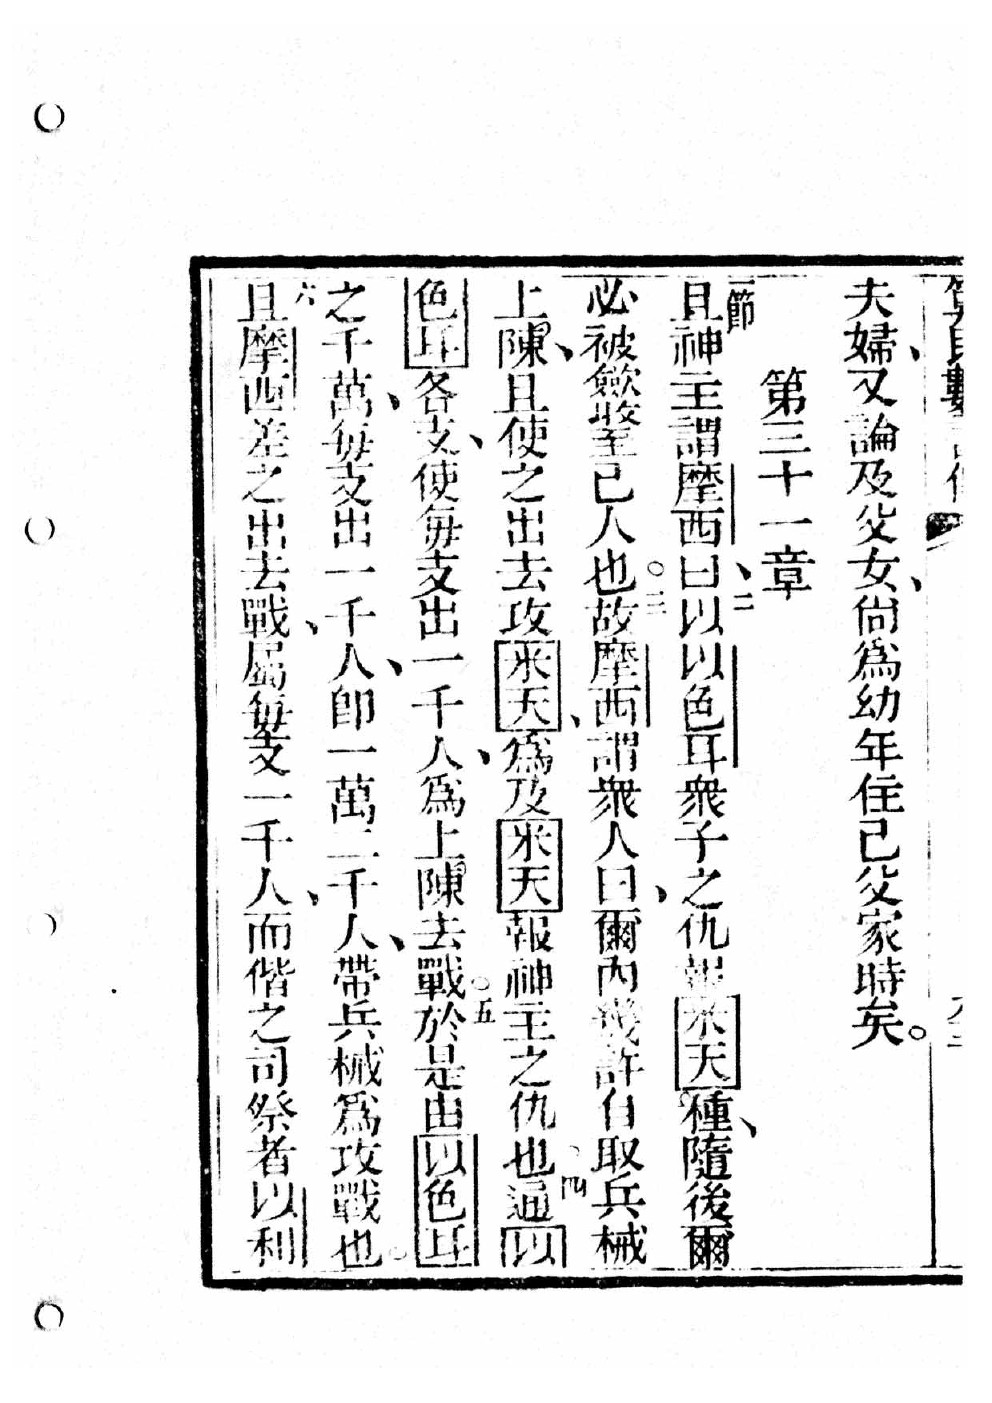 夫婦、又論及父女、尙爲幼年住己父家時矣。
第三十一章
一節 且神主謂摩西曰、二以以色耳衆子之仇報米天種、隨後爾
必被斂𡌛己人也。三故摩西謂衆人曰、爾內幾許自取兵械
上陳、且使之出去攻米天、爲及米天報神主之仇也。四通以
色耳各支、使每支出一千人、爲上陳去戰。五於是由以色耳
之千萬、每支出一千人、卽一萬二千人、帶兵械爲攻戰也。
六且摩西差之出去戰、屬每支一千人、而偕之司祭者以利